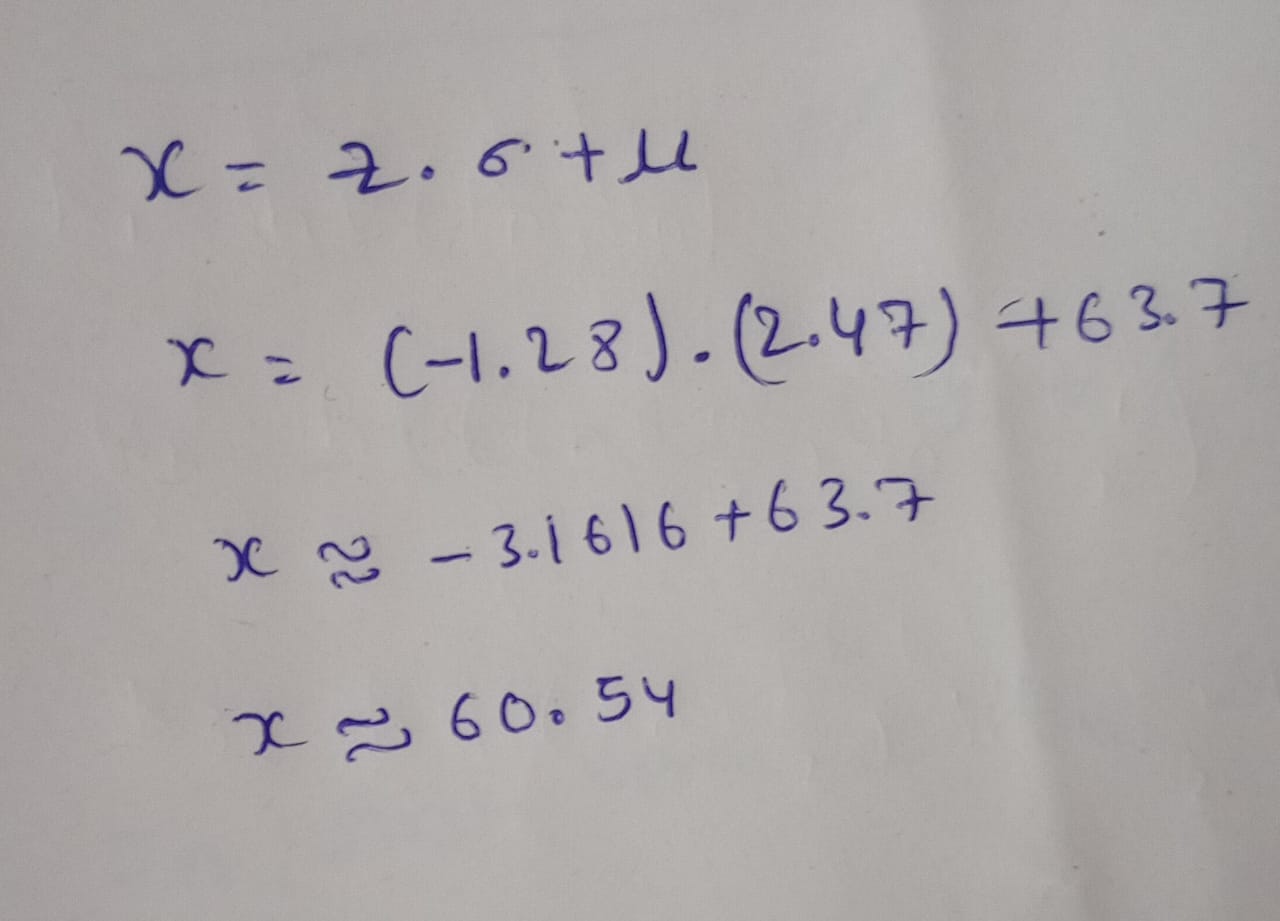 x = z. σ + μ
x = (-1.28).(2.47) +63.7
x ≈ -3.1616 +63.7
x ≈ 60.54